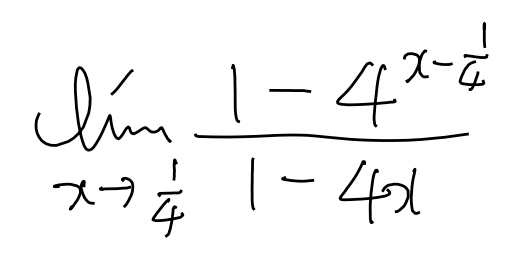 $$\lim_{x \to \frac{1}{4}} \frac{1 - 4^{x - \frac{1}{4}}}{1 - 4x}$$